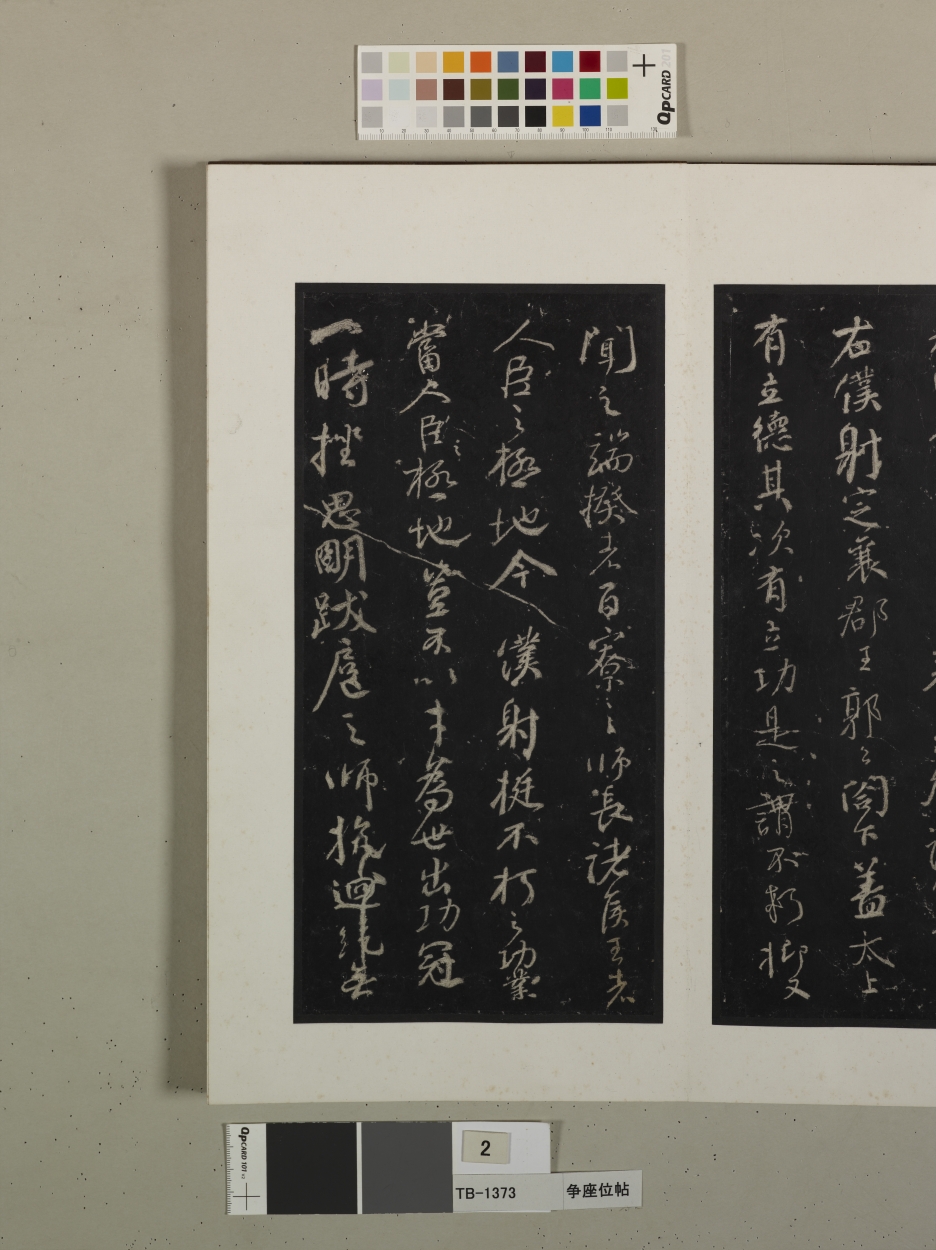 QpCARD 201
右僕射定襄郡王郭公閤下蓋太上
有立德其次有立功是之謂不朽抑又
聞之端揆者百寮之師長諸侯王者
人臣之極地今僕射挺不朽之功業
當人臣之極地豈不以才為世出功冠
一時挫思明跋扈之師抗迴紇無
QpCARD 101
2
TB-1373
争座位帖